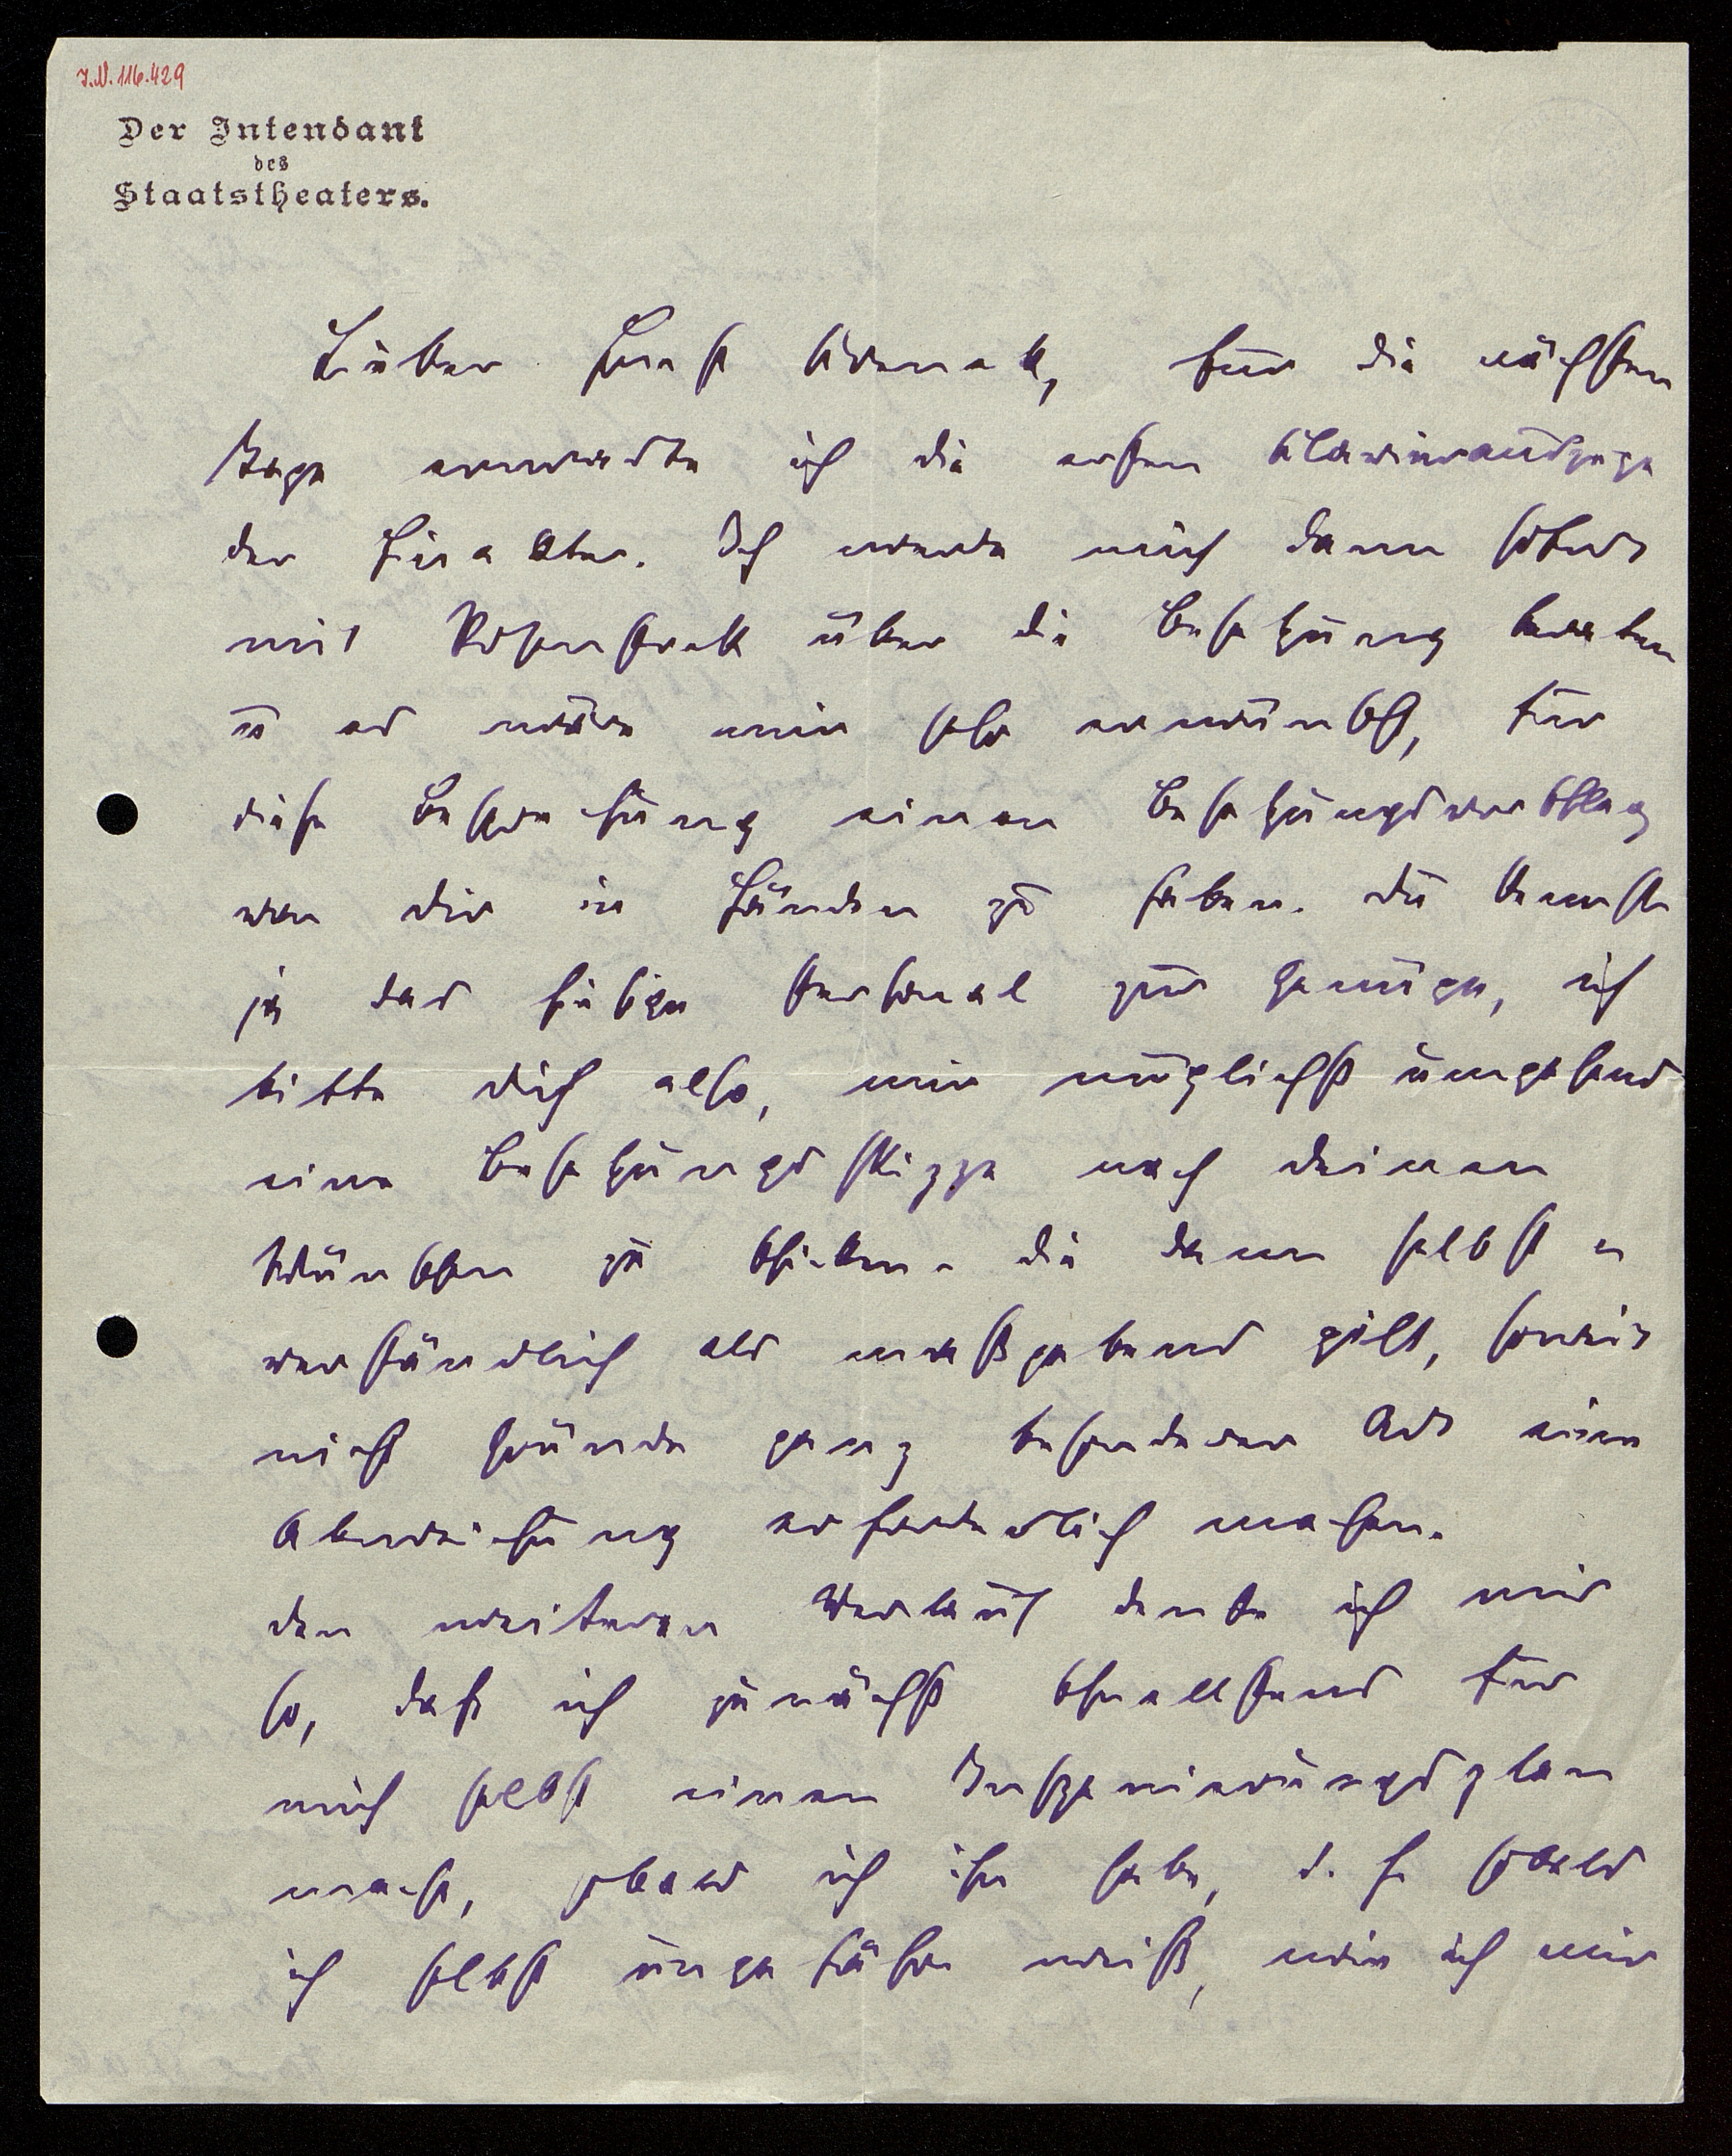 J.N. 116.429
Der Intendant
des
Staatstheaters.
Lieber Ernst Krenek, für die nächsten
Tage erwarte ich die ersten Klavierauszüge
der Einakter. Ich werde mich dann sofort
mit Rosenstock über die Besetzung beraten
u es wäre mir sehr erwünscht, für
diese Besprechung einen Besetzungsvorschlag
von dir in Händen zu haben. Du kennst
ja das hiesige Personal zur Genüge, ich
bitte dich also, mir möglichst umgehend
eine Besetzungsskizze nach deinen
Wünschen zu schicken, die dann selbst=
verständlich als maßgebend gilt, soweit
nicht Gründe ganz besonderer Art eine
Abweichung erforderlich machen.
Den weiteren Verlauf denke ich mir
so, daß ich zunächst schnellstens für
mich selbst einen Inszenierungsplan
mache, sobald ich ihn habe, d. h. sobald
ich selbst ungefähr weiß, wie ich mir